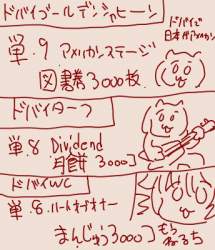 ドバイゴールデンシャヒーン
ドバイで
日本でアメリカン
単.9 アメリカンステージ
図書券3000枚
ドバイターフ
単.8 Dividend
月餅 3000コ
ドバイWC
単.8.ハートオブオナー
まんじゅう3000コ
もらえるち